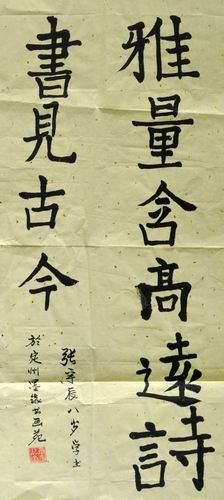 雅量含高遠詩
書見古今
张宇辰八岁学士
於定州墨缘书画苑